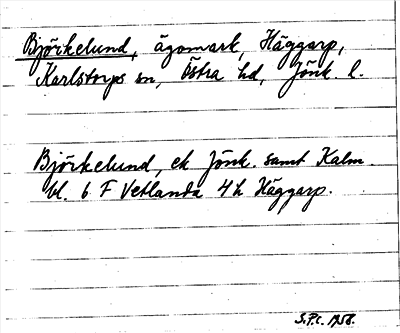 Björkelund, ägomark, Häggarp,
Karlstorps sn, Östra hd, Jönk. l.
Björkelund, ek Jönk. samt Kalm.
bl. 6 F Vetlanda 4h Häggarp.
S.P.c. 1958.